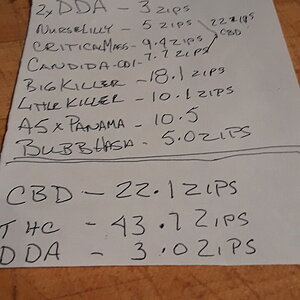 2x DDA - 3 ZIPS
NURSE LILLY - 5 ZIPS
CRITICAL MASS - 9.4 ZIPS 22.1 ZIPS
CANDIDA-CD1 - 7.7 ZIPS CBD
BIG KILLER - 18.1 ZIPS
LITTLE KILLER - 10.1 ZIPS
A5 x PANAMA - 10.5
BUBBHASH - 5.0 ZIPS
CBD - 22.1 ZIPS
THC - 43.7 ZIPS
DDA - 3.0 ZIPS